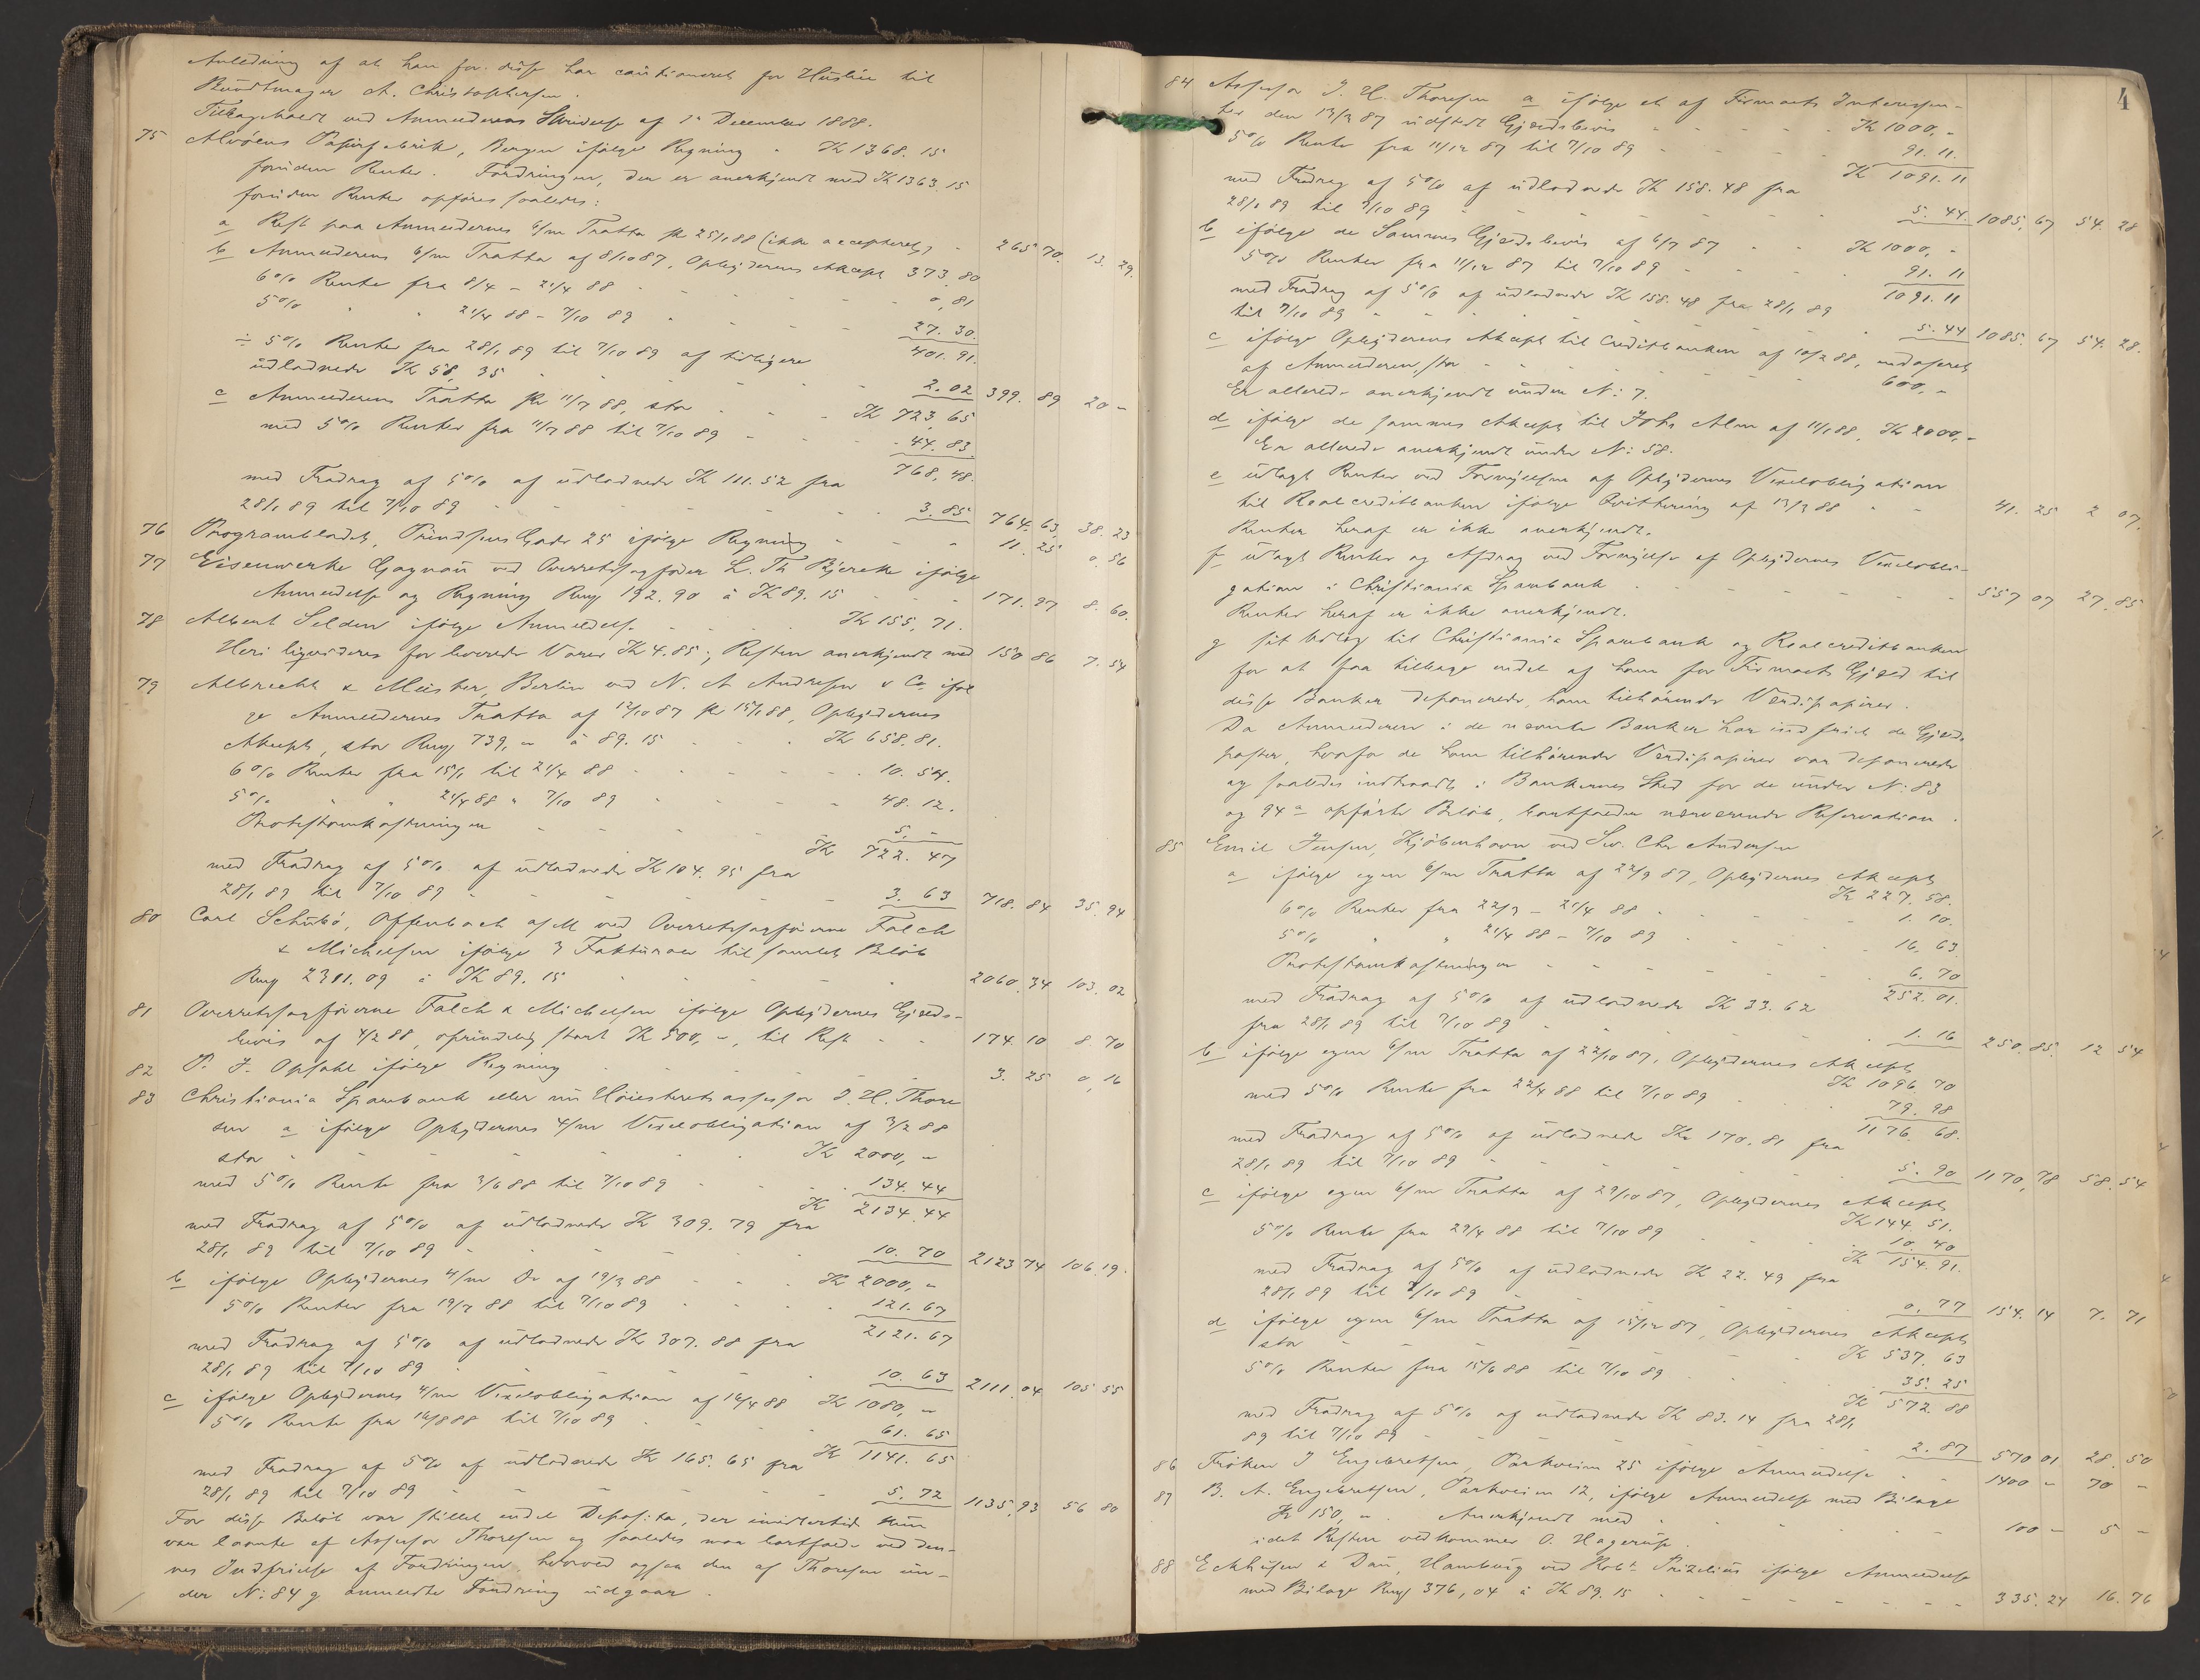 Anledning af at han for disse har cautioneret for Huslein til
Bundtmager A. Christophersen.
Tilbagekaldt ved Anmelderens Skrivelse af 1ste December 1888.
75 Alvöens Papirfabrik, Bergen ifölge Regning - Kr 1368. 15
foruden Renter. Fordringen, der er anerkjendt med Kr 1363. 15
foruden Renter opföres saaledes:
a Rest paa Anmeldernes 6/m Tratta pr 25/1 88 (ikke accepteret) - 265 70. 13. 29.
b Anmelderens 6/m Tratta af 8/10 87, Opbyderens Accept 373. 80
6 % Renter fra 8/4 - 21/4 88 - 0, 81
5 % " " 21/4 88 - 7/10 89 - 27. 30.
401. 91.
÷ 5 % Renter fra 28/1 89 til 7/10 89 af tidligere
udlodnede Kr 58, 35 - 2. 02 399. 89 20 -
c Anmelderens Tratta pr 11/7 88, stor - Kr 723, 65
med 5 % Renter fra 11/7 88 til 7/10 89 - 44. 83.
768, 48.
med Fradrag af 5 % af udlodnede Kr 111. 52 fra
28/1 89 til 7/10 89 - 3. 85 764. 63. 38. 23
76 Programbladet, Prindsens Gade 25 ifölge Regning - 11. 25 0. 56
77 Eisenwerke Gagnau ved Overretssagförer L. Th. Bjercke ifölge
Anmeldelse og Regning Rmf 192. 90 à Kr 89. 15 - 171. 97 8. 60.
78 Albert Selden ifölge Anmeldelse - Kr 155, 71.
Heri liqvideres for leverede Varer Kr 4. 85; Resten anerkjendt med 150 86 7. 54
79 Albrecht & Meister, Berlin ved N. A Andresen & Co. iföl
ge Anmeldernes Tratta af 12/10 87 pr 15/1 88, Opbydernes
Accept, stor Rmf 739, - à 89. 15 - Kr 658. 81.
6 % Renter fra 15/1 til 21/4 88 - 10. 54.
5 % " " 21/4 88 " 7/10 89 - 48. 12.
Protestomkostninger - 5. -
Kr 722. 47
med Fradrag af 5 % af udlodnede Kr 104. 95 fra
28/1 89 til 7/10 89 - 3. 63 718. 84 35. 94
80 Carl Schübö, Offenbach a/M ved Overretssagförerne Falch
& Michelsen ifölge 3 Fakturaer til samlet Belöb
Rmf 2311. 09 à Kr 89. 15 - 2060. 34 103. 02
81 Overretssagförerne Falch & Michelsen ifölge Opbydernes Gjælds-
bevis af 4/2 88, oprindelig stort Kr 500, -, til Rest - 174. 10 8. 70
82 P. J. Opsahl ifölge Regning - 3. 25 0, 16
83 Christiania Sparebank eller nu Höiesteretsassessor J. H. Thore
sen a ifölge Opbydernes 4/m Vexelobligation af 3/2 88
stor - Kr 2000, -
med 5 % Rente fra 3/6 88 til 7/10 89 - 134. 44
Kr 2134. 44
med Fradrag af 5 % af udlodnede Kr 309. 79 fra
28/1 89 til 7/10 89 - 10. 70 2123 74 106. 19.
b ifölge Opbydernes 4/m Do af 19/3 88 - Kr 2000, -
5 % Renter fra 19/7 88 til 7/10 89 - 121. 67
2121. 67
med Fradrag af 5 % af udlodnede Kr 307. 88 fra
28/1 89 til 7/10 89 - 10. 63 2111. 04 105 55
c ifölge Opbydernes 4/m Vexelobligation af 16/4 88 Kr 1080, -
5 % Rente fra 16/8 88 til 7/10 89 - 61. 65
med Fradrag af 5 % af udlodnede Kr 165. 65 fra Kr 1141. 65
28/1 89 til 7/10 89 - 5. 72 1135, 93 56 80
For disse Belöb var stillet endel Deposita, der imidlertid kun
var laante af Assessor Thoresen og saaledes maa bortfalde ved den-
nes Indfrielse af Fordringen, hvorved ogsaa den af Thoresen un-
der No: 84 g anmeldte Fordring udgaar.
4
84 Assessor J. H. Thoresen a ifölge et af Firmaets Interessen-
ter den 13/3 87 udstedt Gjældsbevis - Kr 1000, -
5 % Renter fra 11/12 87 til 7/10 89 - 91. 11.
Kr 1091. 11
med Fradrag af 5 % af udlodnede Kr 158. 48 fra
28/1 89 til 7/10 89 - 5. 44. 1085, 67 54. 28
b ifölge de Sammes Gjældsbevis af 6/7 87 - Kr 1000, -
5 % Renter fra 11/12 87 til 7/10 89 - 91. 11
1091. 11
med Fradrag af 5 % af udlodnede Kr 158. 48 fra 28/1 89
til 7/10 89 - 5. 44 1085. 67 54. 28.
c ifölge Opbyderens Accept til Creditbanken af 10/2 88, endosseret
af Anmelderen, stor - 600, -
Er allerede anerkjendt under No: 7.
d ifölge de sammes Accept til Johs Alm af 11/1 88, Kr 2000, -
Er allerede anerkjendt under No: 58.
e udlagt Renter ved Fornyelsen af Opbydernes Vexelobligation
til Realcreditbanken ifölge Qvittering af 13/3 88 - 41. 25 2 07.
Renter heraf er ikke anerkjendt.
f udlagt Renter og Afdrag ved Fornyelse af Opbydernes Vexelobli-
gation i Christiania Sparebank - 557 07 27. 85
Renter heraf er ikke anerkjendt.
g sit Udlæg til Christiania Sparebank og Realcreditbanken
for at faa tilbage endel af ham for Firmaets Gjæld til
disse Banker deponerede, ham tilhörende Værdipapirer.
Da Anmelderen i de nævnte Banker har indfriet de Gjælds
poster, hvorfor de ham tilhörende Værdipapirer var deponerede
og saaledes indtraadt i Bankernes Sted for de under No: 83
og 94 a opförte Belöb, bortfalder nærværende Reservation.
85 Emil Jensen, Kjöbenhavn ved Sv. Chr Andersen
a ifölge egen 6/m Tratta af 22/9 87, Opbydernes Accept
Kr 227. 58.
6 % Renter fra 22/3 - 21/4 88 - 1. 10.
5 % " " 21/4 88 - 7/10 89 - 16. 63
Protestomkostninger - 6. 70
252. 01.
med Fradrag af 5 % af udlodnede Kr 33. 62
fra 28/1 89 til 7/10 89 - 1. 16 250. 85. 12 54
b ifölge egen 6/m Tratta af 22/10 87, Opbydernes Accept
Kr 1096 70
med 5 % Renter fra 22/4 88 til 7/10 89 - 79. 98
1176. 68.
med Fradrag af 5 % af udlodnede Kr 170. 81 fra
28/1 89 til 7/10 89 - 5. 90 1170, 78 58. 54
c ifölge egen 6/m Tratta af 29/10 87, Opbydernes Accept
Kr 144. 51.
5 % Renter fra 29/4 88 til 7/10 89 - 10. 40
Kr 154. 91.
med Fradrag af 5 % af udlodnede Kr 22. 49 fra
28/1 89 til 7/10 89 - 0, 77 154. 14 7. 71
d ifölge egen 6/m Tratta af 15/12 87, Opbydernes Accept
stor - Kr 537. 63
5 % Renter fra 15/6 88 til 7/10 89 - 35. 25
Kr 572. 88
med Fradrag af 5 % af udlodnede Kr 83. 14 fra 28/1
89 til 7/10 89 - 2. 87 570 01 28. 50
86 Fröken J Engebretsen, Parkveien 25 ifölge Anmeldelse - 1400 - 70 -
87 B. A. Engebretsen, Parkveien 12, ifölge Anmeldelse med Bilage
Kr 150, -. Anerkjendt med - 100 - 5 -
idet Resten vedkommer O. Hagerup.
88 Eckhusen & Dau, Hamburg ved Robt Prizelius ifölge Anmeldelse
med Bilage Rmf 376, 04 à Kr 89. 15 - 335. 24 16. 76